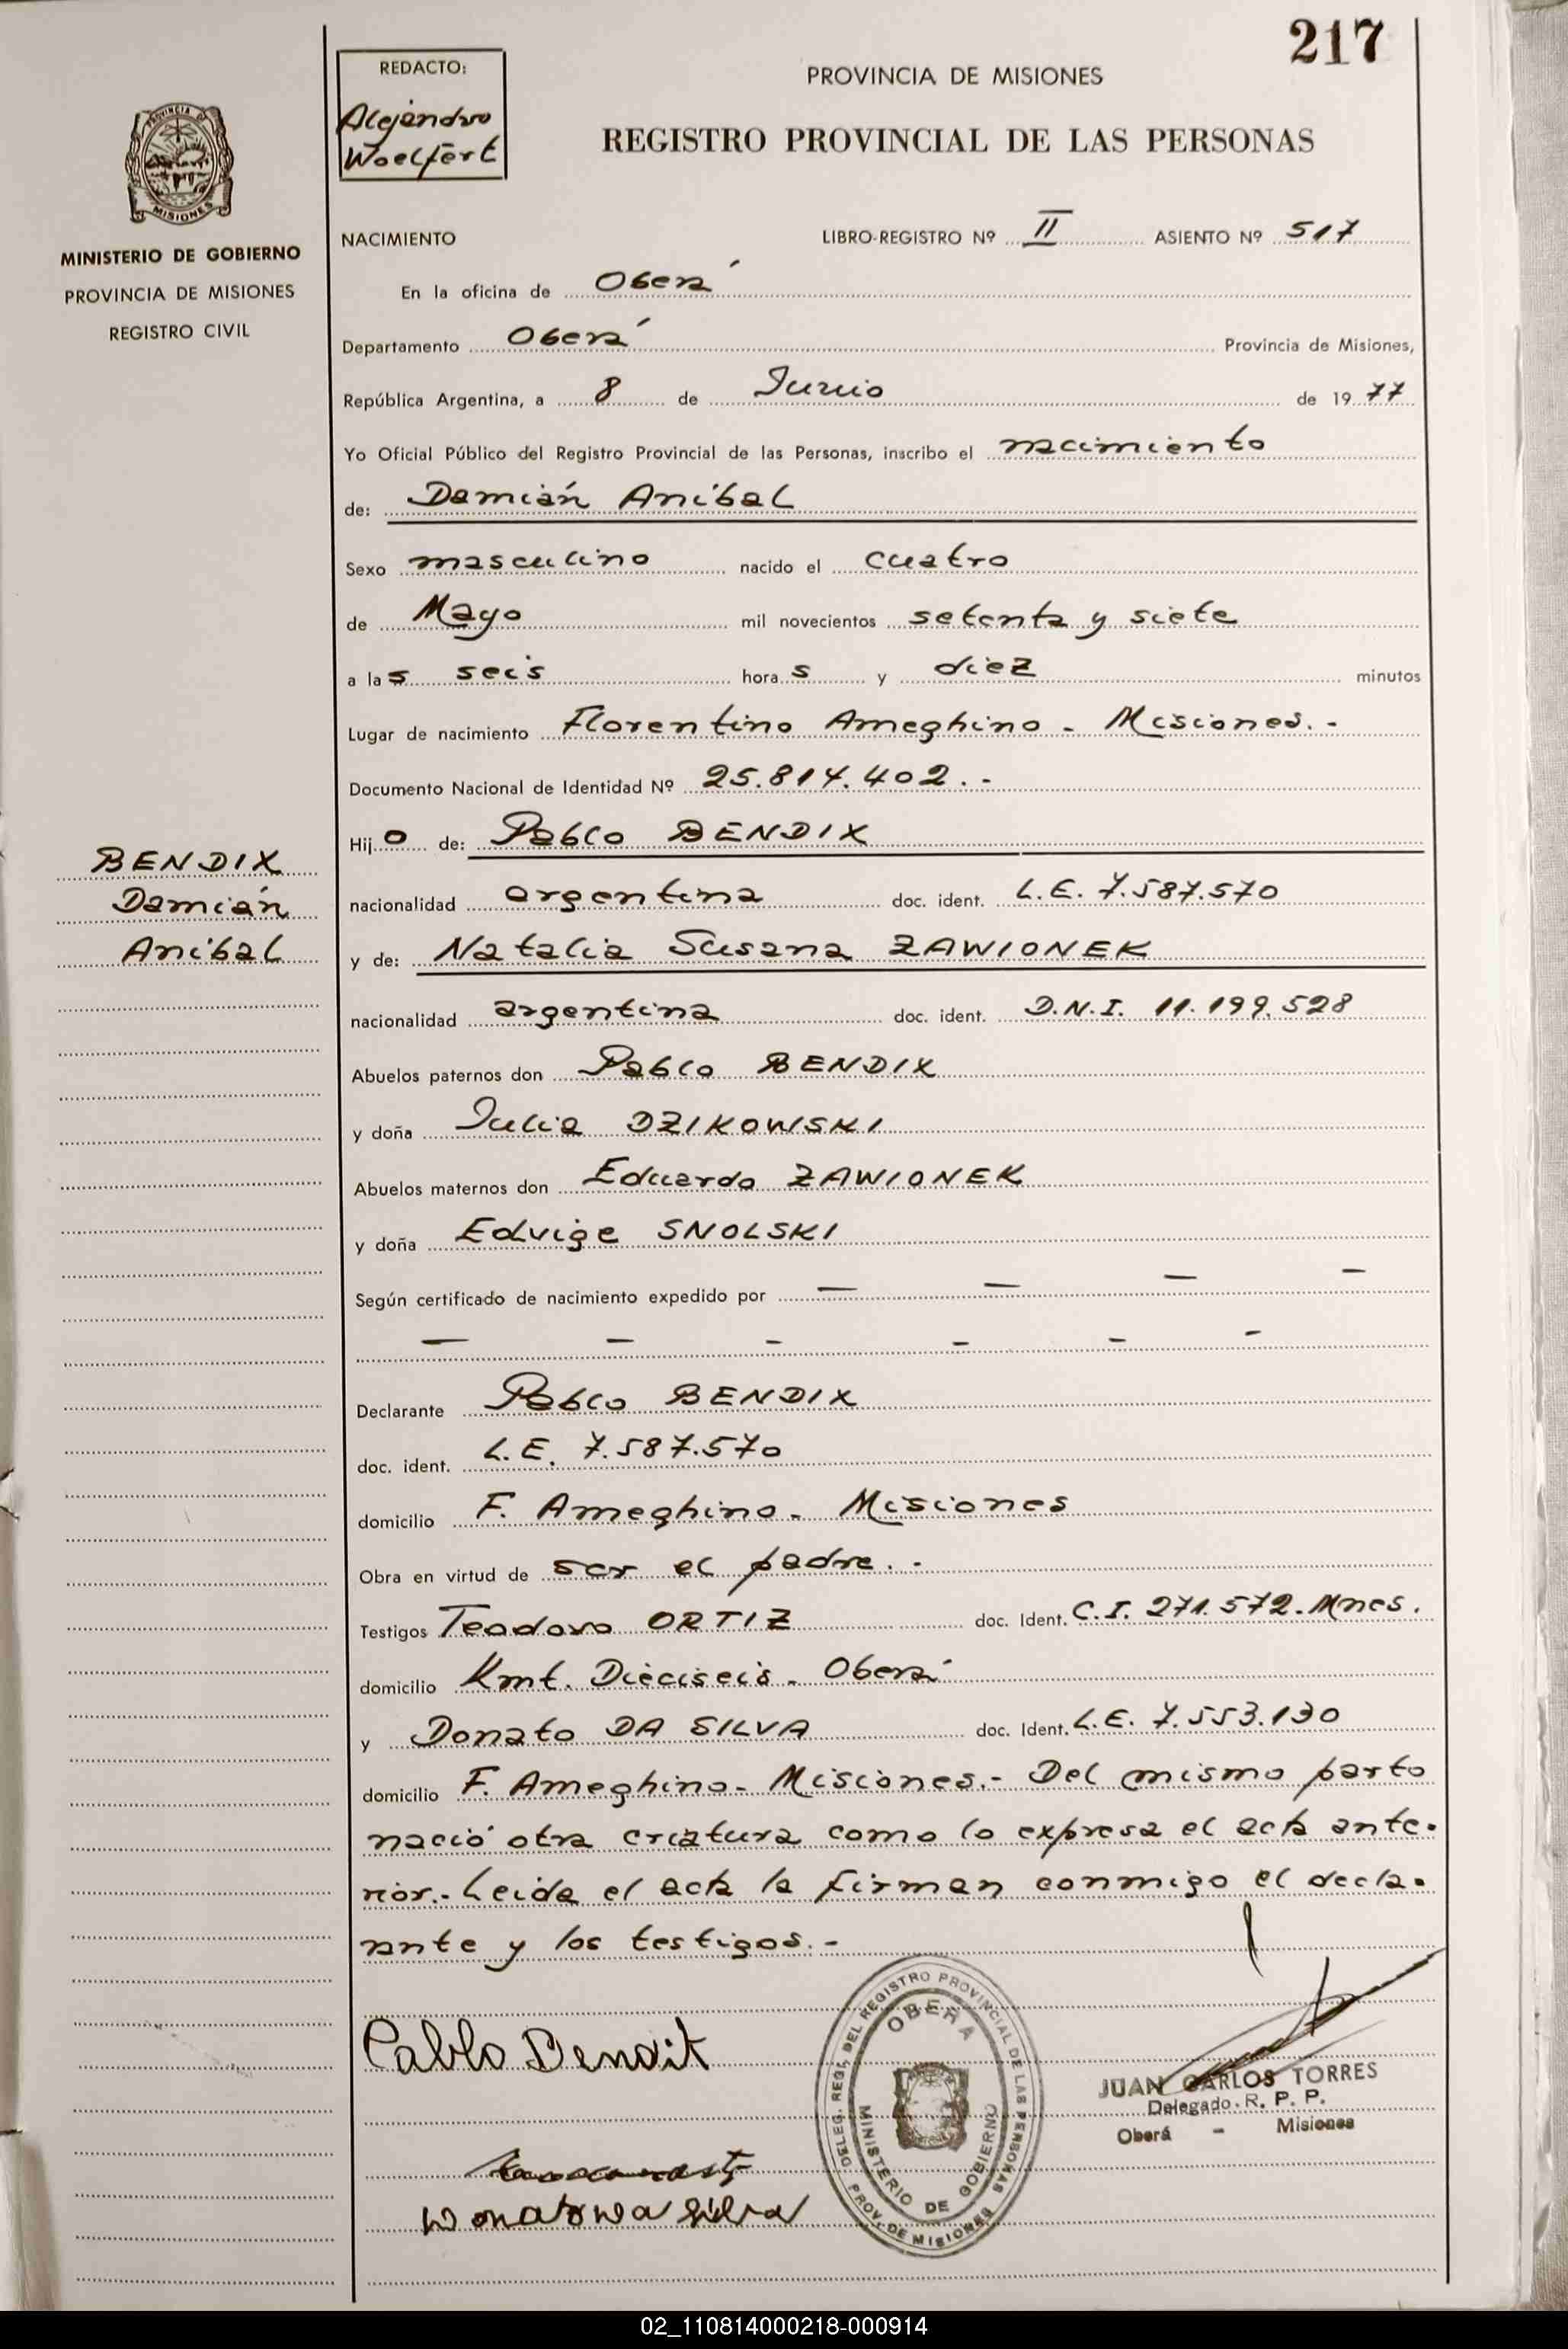 217
REDACTO:
Alejandro
Woelfert
PROVINCIA DE MISIONES
REGISTRO PROVINCIAL DE LAS PERSONAS
PROVINCIA DE
MISIONES
MINISTERIO DE GOBIERNO
PROVINCIA DE MISIONES
REGISTRO CIVIL
NACIMIENTO LIBRO-REGISTRO Nº II ASIENTO Nº 517
En la oficina de Oberá
Departamento Oberá Provincia de Misiones,
República Argentina, a 8 de Junio de 1977
Yo Oficial Público del Registro Provincial de las Personas, inscribo el nacimiento
de: Damián Aníbal
Sexo masculino nacido el cuatro
de Mayo mil novecientos setenta y siete
a las seis horas y diez minutos
Lugar de nacimiento Florentino Ameghino - Misiones.-
Documento Nacional de Identidad Nº 25.814.402.-
Hijo de: Pablo BENDIX
BENDIX
Damián
Aníbal
nacionalidad argentina doc. ident. L.E. 7.587.570
y de: Natalia Susana ZAWIONEK
nacionalidad argentina doc. ident. D.N.I. 11.199.528
Abuelos paternos don Pablo BENDIX
y doña Julia DZIKOWSKI
Abuelos maternos don Eduardo ZAWIONEK
y doña Edvige SNOLSKI
Según certificado de nacimiento expedido por — — — —
— — - - - -
Declarante Pablo BENDIX
doc. ident. L.E. 7.587.570
domicilio F. Ameghino - Misiones
Obra en virtud de ser el padre.-
Testigos Teodoro ORTIZ doc. Ident. C.I. 271.572. Mnes.
domicilio Kmt. Dieciseis - Oberá
y Donato DA SILVA doc. Ident. L.E. 7.553.130
domicilio F. Ameghino - Misiones.- Del mismo parto
nació otra criatura como lo expresa el acta ante-
rior.- Leida el acta la firman conmigo el decla-
rante y los testigos.-
Pablo Bendit
DELEG. REGI. DEL REGISTRO PROVINCIAL DE LAS PERSONAS
OBERA
MINISTERIO DE GOBIERNO
PROV. DE MISIONES
JUAN CARLOS TORRES
Delegado. R. P. P.
Oberá - Misiones
Donato Da Silva
02_110814000218-000914